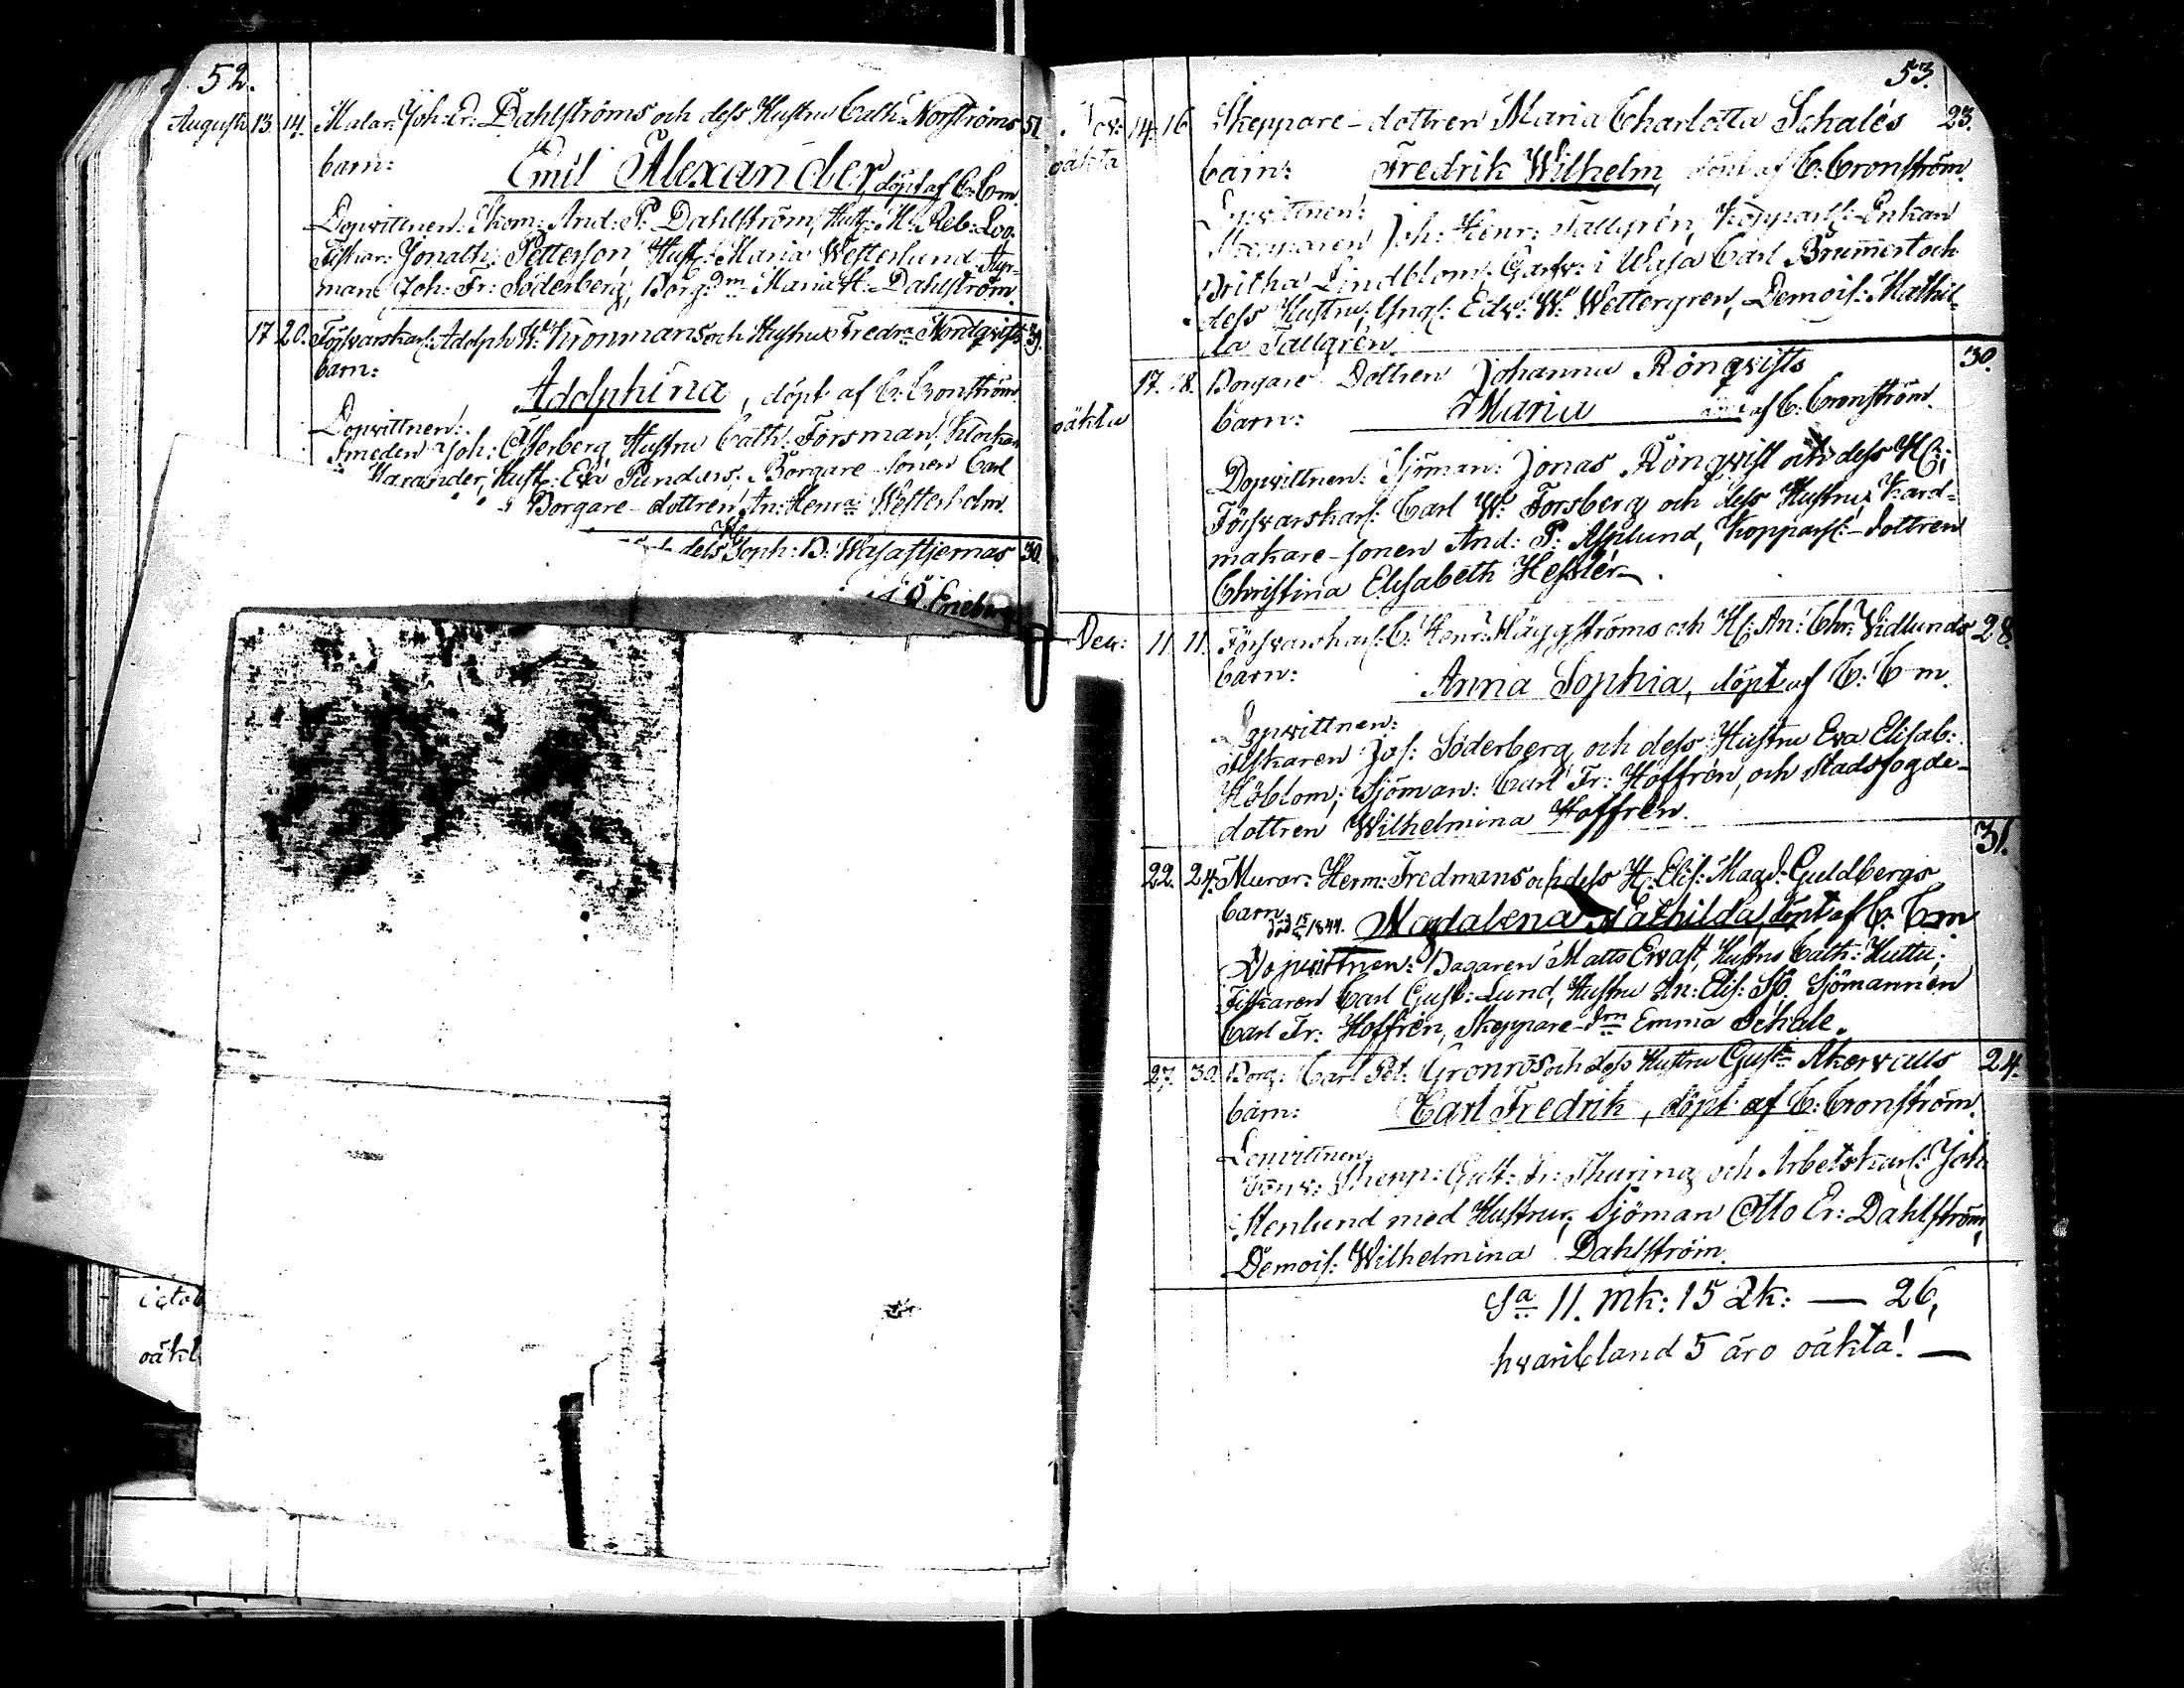 52.
August 13. 14. Målar: Joh: Er: Dahlströms och dess Hustru Cath: Norströms 51
barn: Emil Alexander, döpt af C: Cm.
Dopvittnen: Skom: And: P: Dahlström, Hust: M: Reb: Loo.
Fiskar: Jonath: Petterson Hust: Maria Westerlund. Styr-
man Joh: Fr: Söderberg, Borg: Dm Maria H: Dahlström.
17 20. Försvarskarl: Adolph W: Kronmans och Hustru Fredr: Nordqvists 39.
barn:
Adolphina, döpt af C: Cronström
Dopvittnen:
Smeden Joh: Österberg, Hustru Cath: Forsman, Klockar
Harander, Hust: Eva Pundars, Borgare-sonen Carl
Borgare-dottren An: Henr: Westerholm.
dess H Soph: B: Wasastjernas 30.
Eneberg
octob
oäkt
53.
Nov: 14. 16 Skeppare-dottren Maria Charlotta Schalés 23.
oäkta barn: Fredrik Wilhelm, döpt af C: Cronström.
Dopvittnen:
Skepparen Joh: Henr: Tallgrén, Kopparsl:-Enkan
Britha Lindblom, Garfv: i Wasa Carl Brummert och
dess Hustru, Ungk: Edv: W: Wettergren, Demois: Mathil-
da Tallgrén.
17. 18. Borgare Dottren Johanna Rönqvists 30.
oäkta barn: Maria döpt af C: Cronström.
Dopvittnen: Sjöman: Jonas Rönqvist och dess H:;
Försvarskarl: Carl W: Forsberg och dess Hustru, Kard-
makare-sonen And: P: Asplund, Kopparsl:-dottren
Christina Elisabeth Hessler.
Dec: 11. 11. Försvarskarl: C: Henr: Häggströms och H: An: Chr: Vidlunds 28.
barn: Anna Sophia, döpt af C: C-m.
Dopvittnen:
Fiskaren Jos: Söderberg och dess Hustru Eva Elisab:
Höblom; Sjöman: Carl Fr: Hoffrén, och Stadsfogde-
dottren Wilhelmina Hoffrén.
22. 24. Murar: Herm: Fredmans och dess H: Elis: Magd: Guldbergs 31.
barn 1844. Magdalena Mathilda, döpt af C: Cm
Dopvittnen: Bagaren Matts Ewast, Hustru Cath: Huttu;
Fiskaren Carl Gust: Lund, Hustru An: Elis: Sjömannen
Carl Fr: Hoffrén, Skeppare-Dm Emma Schale.
27. 30. Borg: Carl Pet: Grönros och dess Hustru Gust: Åkervalls 24.
barn: Carl Fredrik, döpt af C: Cronström.
Dopvittnen
Skepp: Gust: Fr: Thuring och Arbetskarl: Joh:
Stenlund med Hustrur, Sjöman Otto Er: Dahlström,
Demois: Wilhelmina Dahlström.
Sa 11. Mk: 15 Qk: — 26,
hvaribland 5 äro oäkta! —